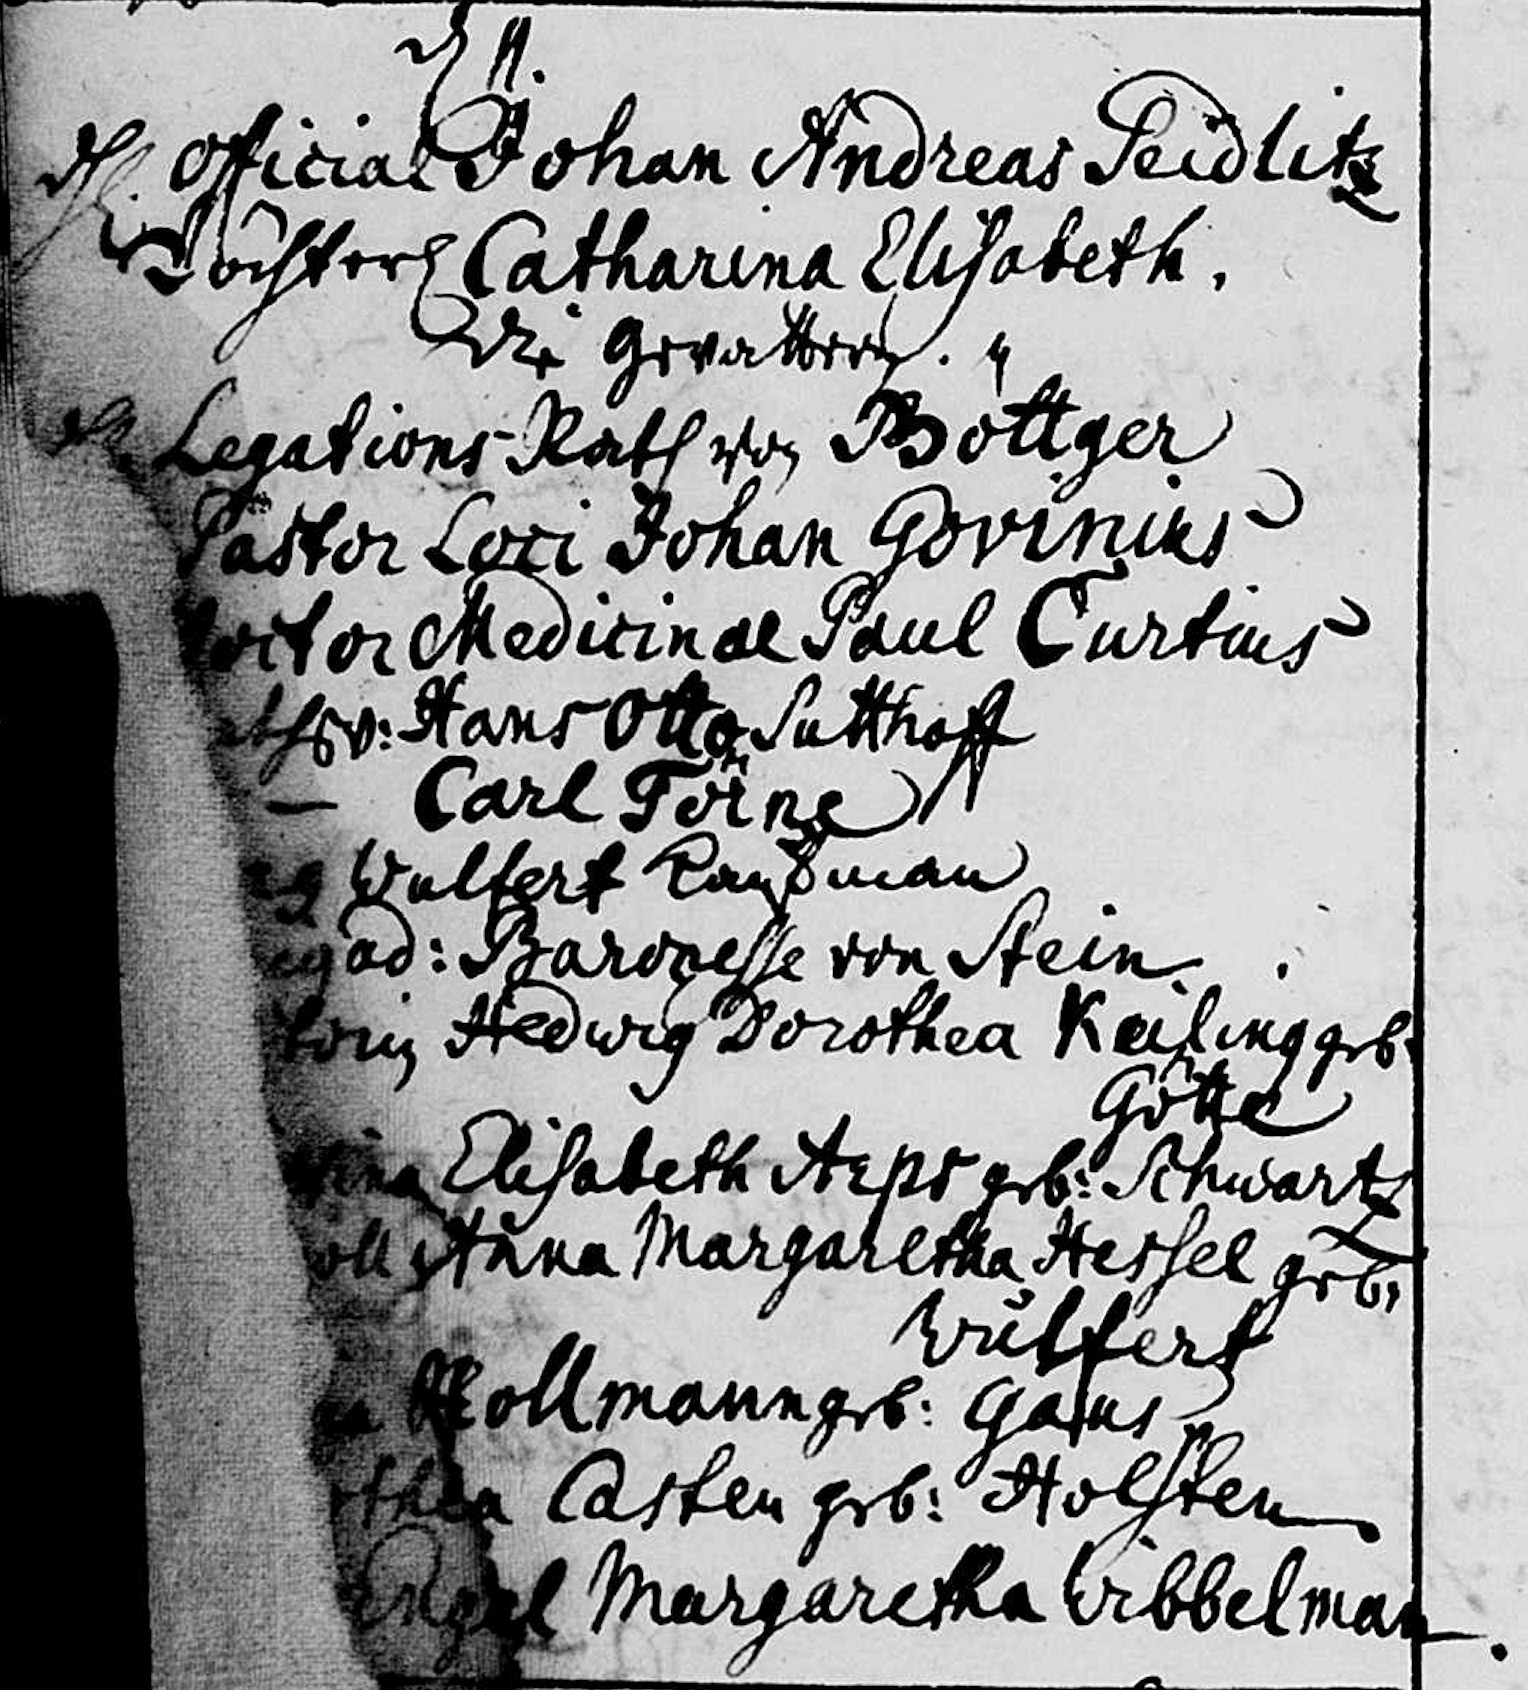 d 11.
Official Johan Andreas Seidlitz
Töchterl Catharina Elisabeth.
Die Gevattern.
Legations-Rath von Böttger
Pastor Loci Johan Govinius
octor Medicinae Paul Curtius
athsv: Hans Otto Sutthoff
— Carl Törne
Wulfert Kaufman
gad: Baronesse von Stein
torin Hedwig Dorothea Keiling geb:
Götte
rina Elisabeth Aeps geb: Schwartz
oll Anna Margaretha Hessel geb:
Wulfert
Mollmann geb: Gans
rthea Casten geb: Holsten
Engel Margaretha Wibbelman.